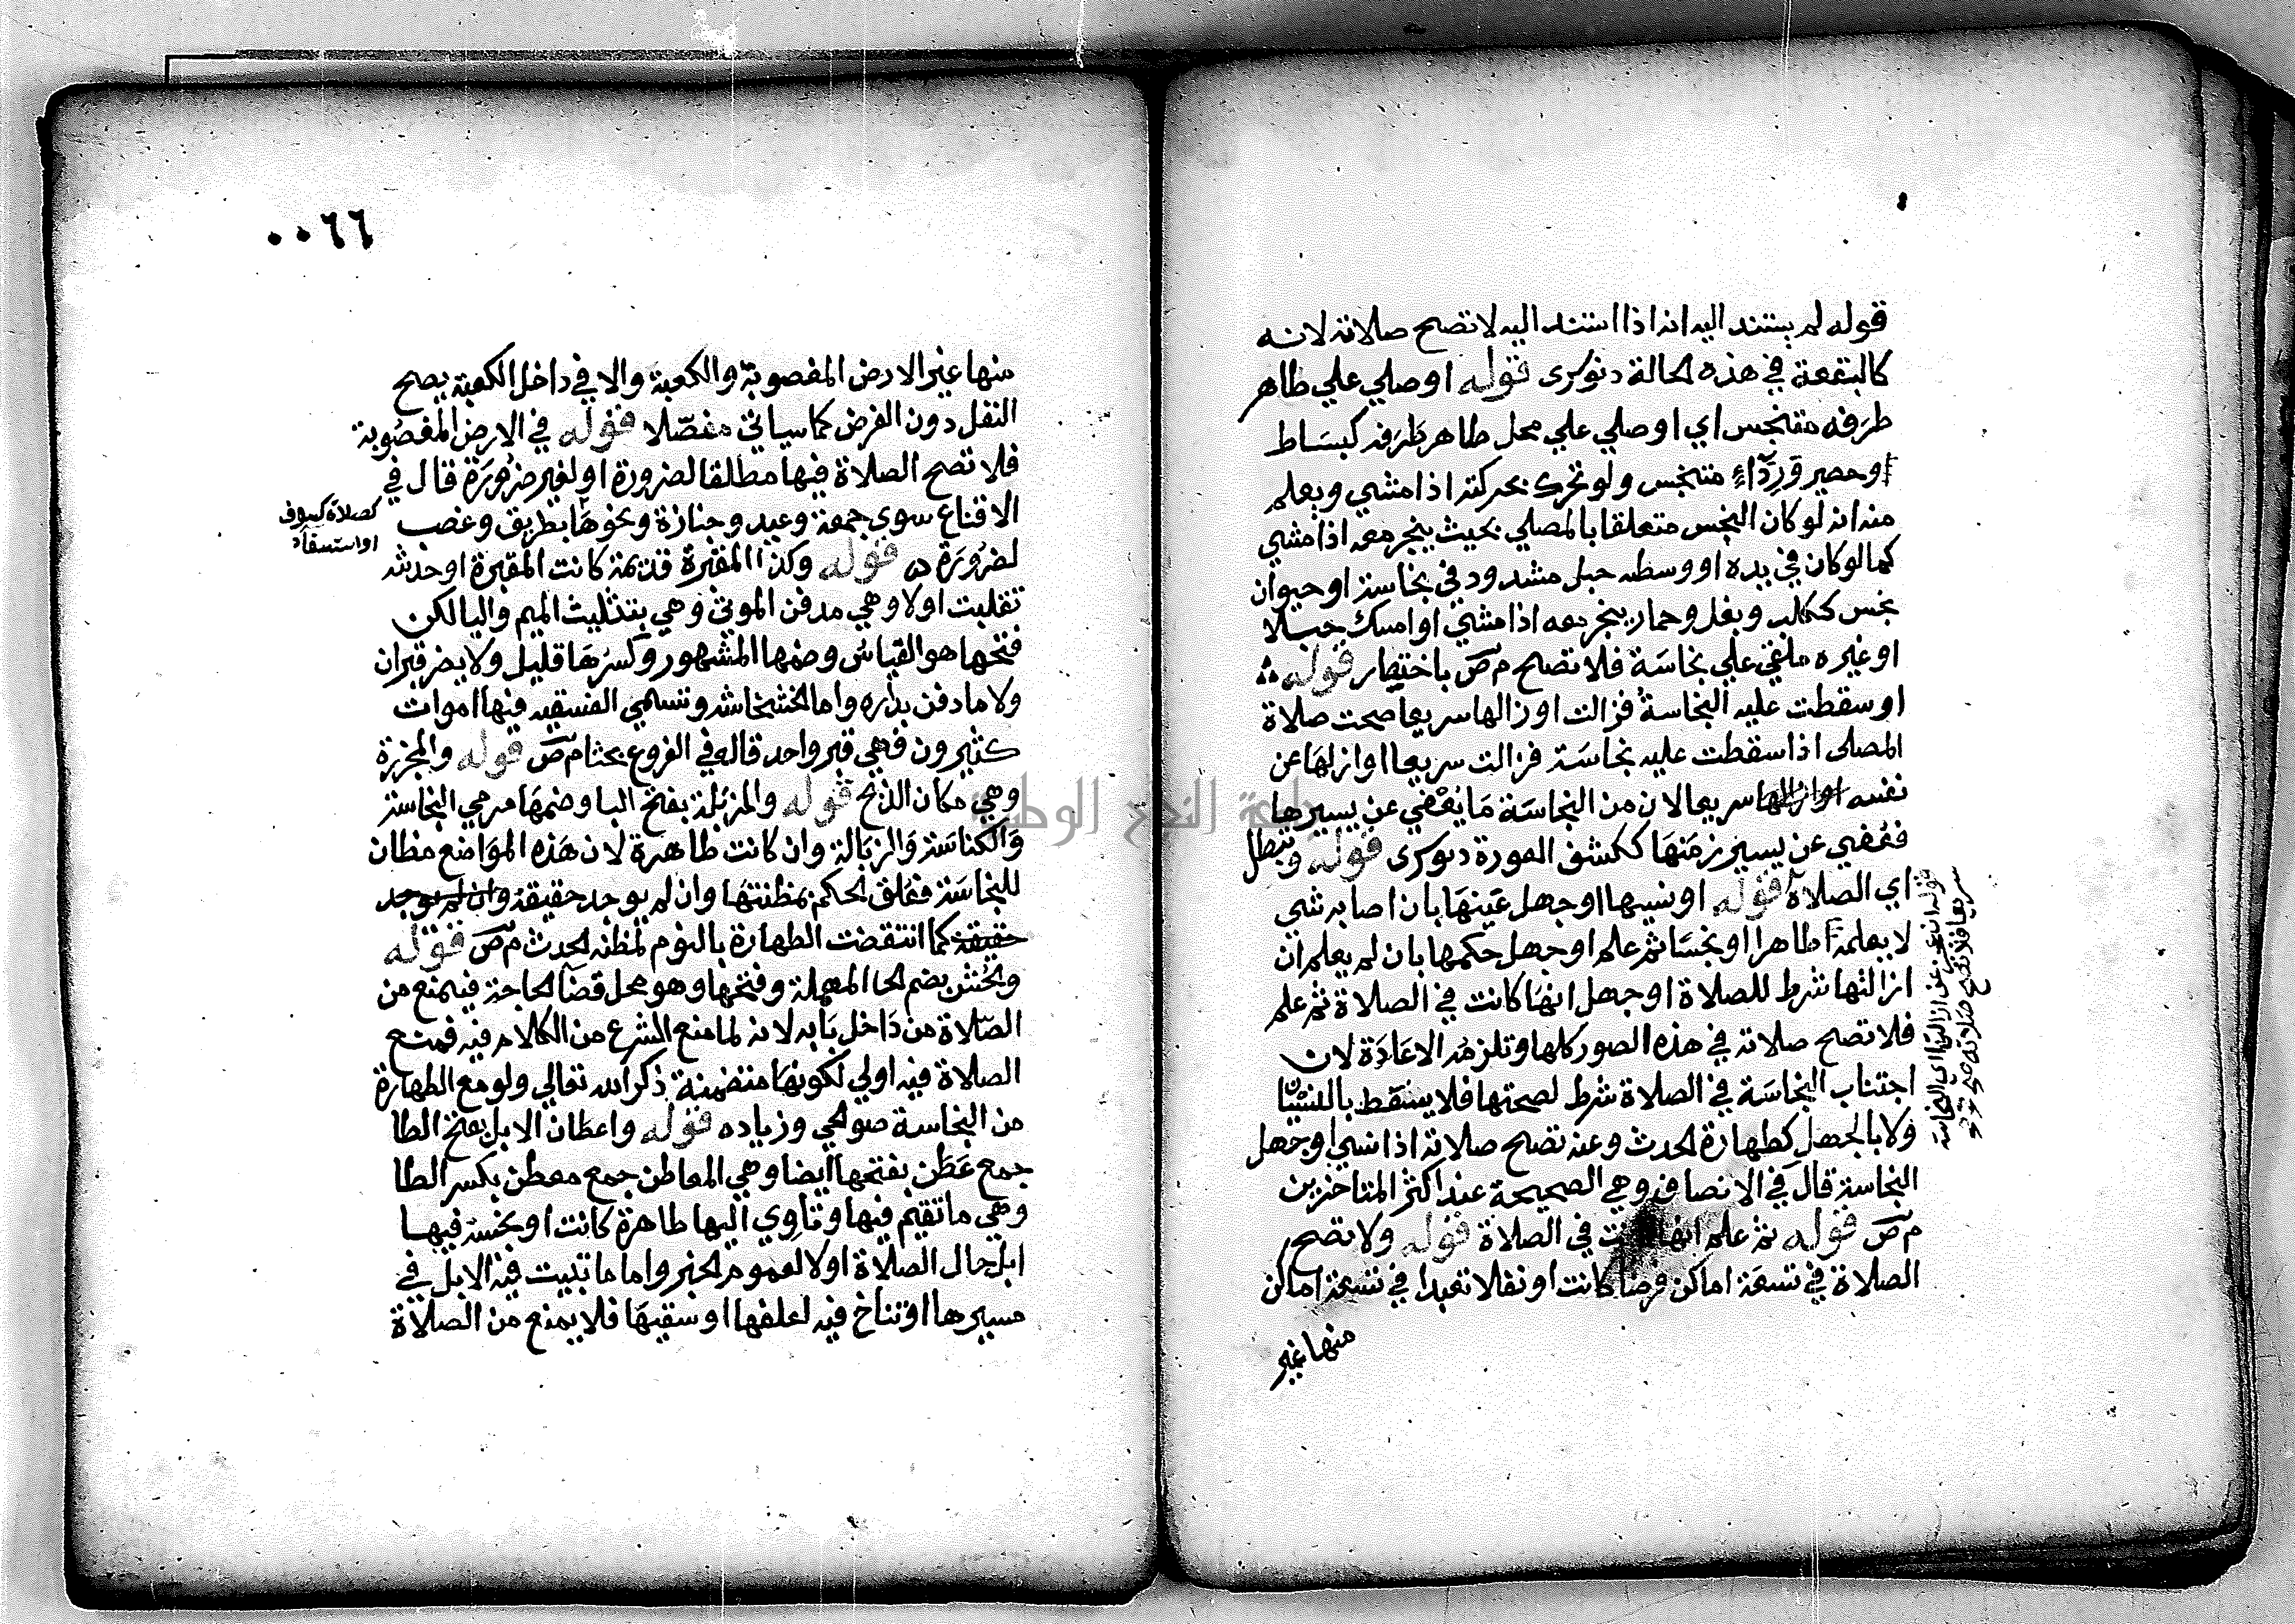 قوله لم يستند اليه انه اذا استند اليه لا تصح صلاته لانه
كالبقعة في هذه الحالة دنوكرى قوله او صلي علي طاهر
طرفه متنجس اي او صلي علي محل طاهر طرفه كبساط
او حصير ورداء متنجس ولو تحرك بحركته اذا مشي ويعلم
منه انه لو كان النجس متعلقا بالمصلي بحيث ينجر معه اذا مشي
كما لو كان في يده او وسطه حبل مشدود في نجاسة او حيوان
نجس ككلب وبغل وحمار ينجر معه اذا مشي او امسك حبلا
او غيره ملقي علي نجاسة فلا تصح م ص باختصار قوله
او سقطت عليه النجاسة فزالت او زالها سريعا صحت صلاة
المصلى اذا سقطت عليه نجاسة فزالت سريعا او ازلها عن
نفسه سريعا لان من النجاسة ما يعفي عن يسيرها
فعفي عن يسير زمنها ككشف العورة دنوكرى قوله وتبطل
اي الصلاة قوله او نسيها او جهل عينها بان اصابه شي
لا يعلمه اطاهرا او نجسا ثم علم او جهل حكمها بان لم يعلم ان
ازالتها شرط للصلاة او جهل انها كانت في الصلاة ثم علم
فلا تصح صلاته في هذه الصور كلها وتلزمه الاعادة لان
اجتناب النجاسة في الصلاة شرط لصحتها فلا يسقط بالنسيان
ولا بالجهل كطهارة الحدث وعنه تصح صلاته اذا نسي او جهل
النجاسة قال في الانصاف وهي الصحيحة عند اكثر المتاخرين
م ص قوله ثم علم انها كانت في الصلاة قوله ولا تصح
الصلاة في تسعة اماكن فرضا كانت او نفلا تعبدا في تسعة اماكن
منها غير
قوله ان عجز عن ازالتها اي النجاسة
سريعا فلا تصح صلاته
٠٠٦٦
منها غير الارض المغصوبة والكعبة والا في داخل الكعبة يصح
النفل دون الفرض كما سياتي مفصلا قوله في الارض المغصوبة
فلا تصح الصلاة فيها مطلقا لضرورة او لغير ضرورة قال في
الاقناع سوي جمعة وعيد وجنازة ونحوها بطريق وغصب
كصلاة كسوف
او استسقاء
لضرورة قوله وكذا المقبرة قديمة كانت المقبرة او حديثه
تقلبت اولا وهي مدفن الموتي وهي بتثليث الميم والبا لكن
فتحها هو القياس وضمها المشهور وكسرها قليل ولا يضر قبران
ولا ما دفن بداره واما الخشخاشه وتسمي الفسقيه فيها اموات
كثيرون فهي قبر واحد قاله في الفروع بحثا م ص قوله والمجزرة
وهي مكان الذبح قوله والمزبلة بفتح البا وضمها مرمي النجاسة
والكناسة والزبالة وان كانت طاهرة لان هذه المواضع مظان
للنجاسة فعلق الحكم بمظنتها وان لم يوجد حقيقة وان لم يوجد
حقيقة كما انتقضت الطهارة بالنوم لمظنه الحدث م ص قوله
والحش بضم الحا المهملة وفتحها وهو محل قضا الحاجة فيمنع من
الصلاة من داخل بابه لانه لما منع الشرع من الكلام فيه فمنع
الصلاة فيه اولي لكونها متضمنة ذكر الله تعالي ولو مع الطهارة
من النجاسة صوالحي وزياده قوله واعطان الابل بفتح الطا
جمع عطن بفتحها ايضا وهي المعاطن جمع معطن بكسر الطا
وهي ما تقيم فيها وتاوي اليها طاهرة كانت او نجسة فيها
ابل حال الصلاة اولا لعموم الخبر واما ما تبيت فيه الابل في
مسيرها او تناخ فيه لعلفها او سقيها فلا يمنع من الصلاة